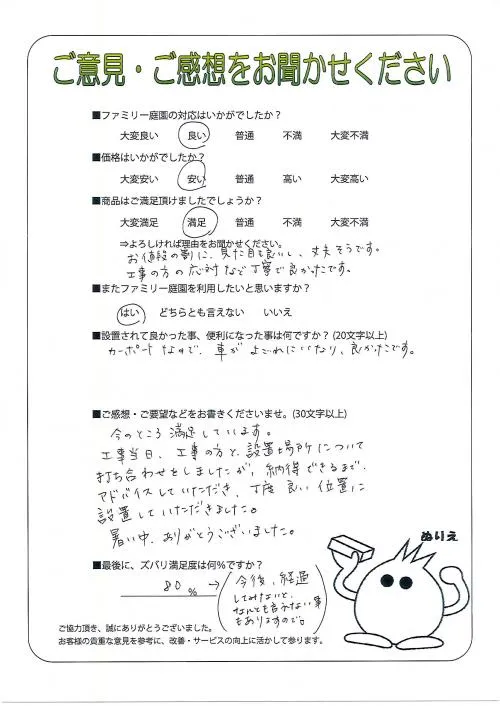 ご意見・ご感想をお聞かせください
■ファミリー庭園の対応はいかがでしたか？
大変良い 良い 普通 不満 大変不満
■価格はいかがでしたか？
大変安い 安い 普通 高い 大変高い
■商品はご満足頂けましたでしょうか？
大変満足 満足 普通 不満 大変不満
⇒よろしければ理由をお聞かせください。
お値段の割に、見た目も良いし、丈夫そうです。
工事の方の応対など丁寧で良かったです。
■またファミリー庭園を利用したいと思いますか？
はい どちらとも言えない いいえ
■設置されて良かった事、便利になった事は何ですか？(20文字以上)
カーポートなので、車がよごれにくいなり、良かったです。
■ご感想・ご要望などをお書きくださいませ。(30文字以上)
今のところ満足しています。
工事当日、工事の方と、設置場所について
打ち合わせをしましたが、納得できるまで、
アドバイスしていただき、丁度良い位置に
設置していただきました。
暑い中、ありがとうございました。
ぬりえ
■最後に、ズバリ満足度は何％ですか？
80 % → (今後、経過
してみないと、
なんとも言えない事
もありますので。)
ご協力頂き、誠にありがとうございました。
お客様の貴重な意見を参考に、改善・サービスの向上に活かして参ります。